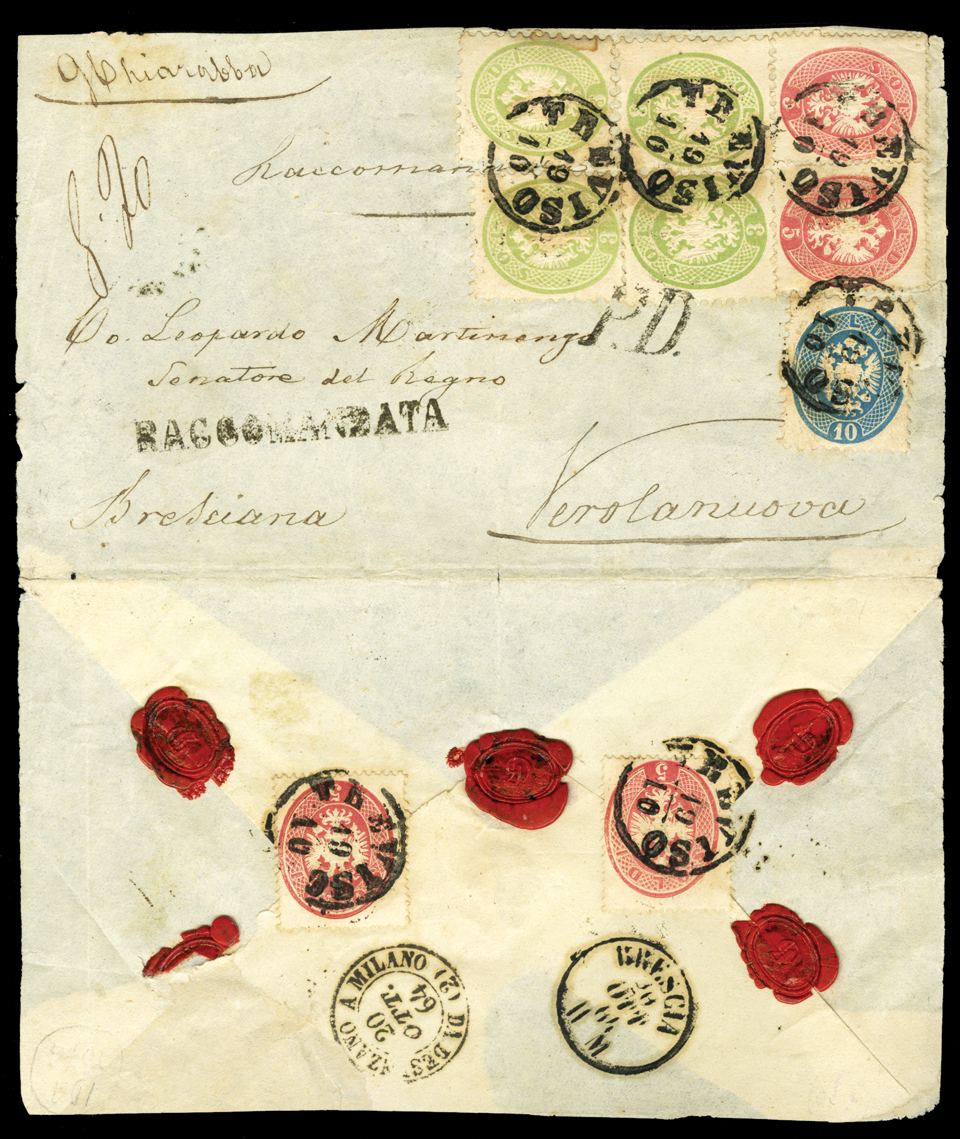 G Chiarabba
Raccoman
TREVISO
19
10
TREVISO
19
10
TREVISO
19
10
3
3
5
5
P.D.
Co. Leopardo Martinengo
Senatore del Regno
RACCOMANDATA
10
Bresciana
Verolanuova
TREVISO
19
10
TREVISO
19
10
5
DA DES ZANO A MILANO (2)
20
OTT.
64
BRESCIA